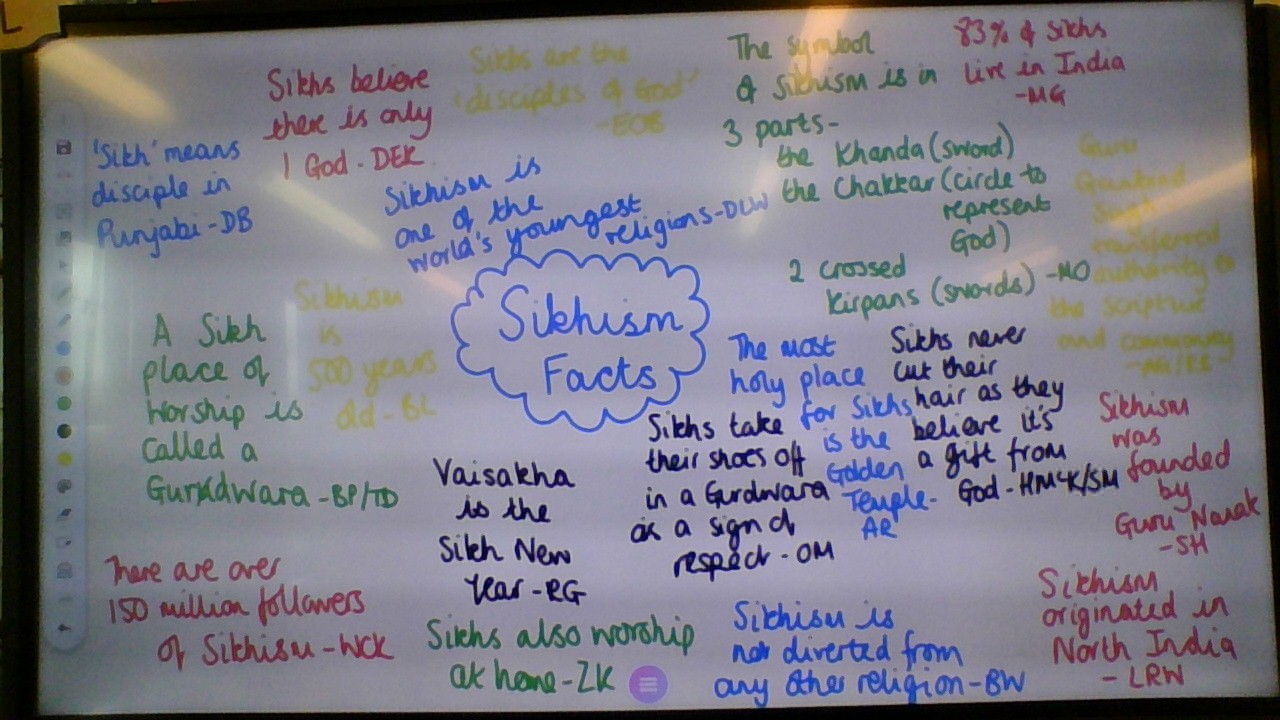 Sikhs believe
there is only
1 God - DEK
Sikhs are the
'disciples of God'
- EOB
The symbol
of Sikhism is in
3 parts -
the Khanda (sword)
the Chakkar (circle to
represent
God)
2 crossed
Kirpans (swords) - MO
83% of Sikhs
live in India
- MG
'Sikh' means
disciple in
Punjabi - DB
Sikhism is
one of the
world's youngest
religions - DLW
Guru
Gobind
Singh
transferred
authority to
the scripture
and community
Sikhism
is
500 years
old - BL
Sikhism
Facts
A Sikh
place of
worship is
called a
Gurdwara - BP/TD
The most
holy place
for Sikhs
is the
Golden
Temple -
AR
Sikhs never
cut their
hair as they
believe it's
a gift from
God - HMcK/SM
Sikhs take
their shoes off
in a Gurdwara
as a sign of
respect - OM
Sikhism
was
founded
by
Guru Nanak
- SH
Vaisakha
is the
Sikh New
Year - RG
There are over
150 million followers
of Sikhism - WCK
Sikhs also worship
at home - ZK
Sikhism is
not diverted from
any other religion - BW
Sikhism
originated in
North India
- LRW